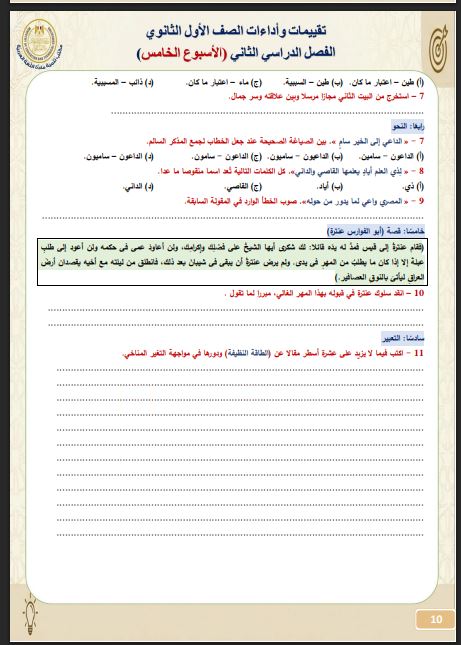 تقييمات وأداءات الصف الأول الثانوي
الفصل الدراسي الثاني (الأسبوع الخامس)
(أ) طين – اعتبار ما كان. (ب) طين – السببية. (ج) ماء – اعتبار ما كان. (د) ذائب – المسببية.
7 – استخرج من البيت الثاني مجازا مرسلا وبين علاقته وسر جمال.
رابعًا: النحو
7 – « الداعي إلى الخير سامٍ ». بين الصياغة الصحيحة عند جعل الخطاب لجمع المذكر السالم.
(أ) الداعون – سامين. (ب) الداعيون – ساميون. (ج) الداعون – سامون. (د) الداعون – ساميون.
8 – « لِذي العلم أيادٍ يعلمها القاصي والداني». كل الكلمات التالية تُعد اسما منقوصا ما عدا.
(أ) ذي. (ب) أياد. (ج) القاصي. (د) الداني.
9 – «المصري واعي لما يدور من حوله». صوب الخطأ الوارد في المقولة السابقة.
خامسًا: قصة (أبو الفوارس عنترة)
(فقام عنترة إلى قيس فمدَّ له يده قائلا: لك شكرى أيها الشيخُ على فضلِك وإكرامِك، ولن أعاود عمى فى حكمه ولن أعود إلى طلب
عبلة إلا إذا كان ما يطلب من المهر فى يدى. ولم يرض عنترةُ أن يبقى فى شيبان بعد ذلك، فانطلق من ليلته مع أخيه يقصدان أرض
العراق ليأتى بالنوق العصافير.)
10 – انقد سلوك عنترة في قبوله بهذا المهر الغالي، مبررا لما تقول .
سادسًا: التعبير
11 – اكتب فيما لا يزيد على عشرة أسطر مقالا عن (الطاقة النظيفة) ودورها في مواجهة التغير المناخي.
10